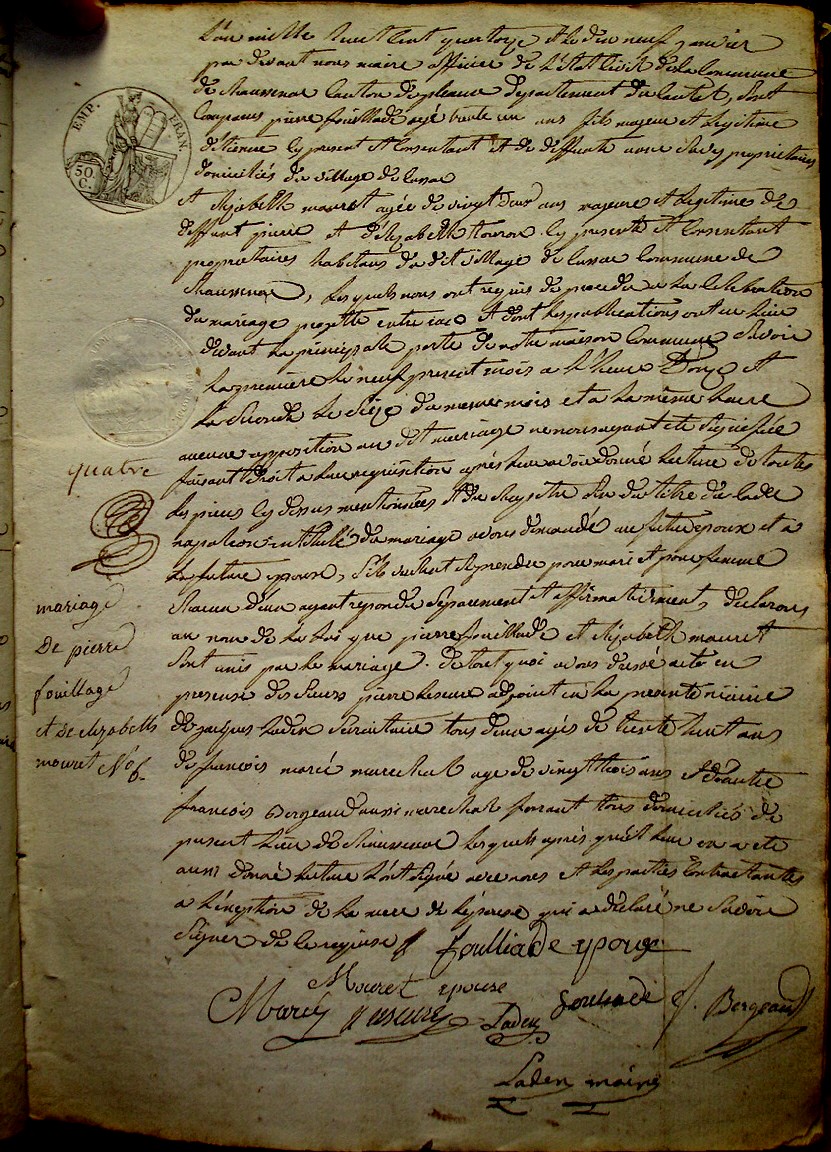 EMP. FRAN.
50. C.
L'an mille huit cent quatorze et le dix neuf janvier
par devant nous maire officier de l'état civil de la Commune
de Chaussenac Canton de pleaux département du Cantal, sont
Comparus pierre fouilhade agé trente un ans fils majeur et legitime
d'étienne cy present et Consentant et de deffunte anne propriétaires
domiciliés du village de lussac
et elizabeth mouret agée de vingt deux ans majeure et legitime de
deffunt pierre et d'élizabeth cy presente et Consentant
propriétaires habitans du dit village de lussac Commune de
Chaussenac, lesquels nous ont requis de proceder a la Célébration
du mariage projetté entre eux et dont les publications ont eu lieu
devant la principalle porte de notre maison Commune Savoir
la premiere le neuf present mois a l'heure D'onze et
la Seconde le Seize du meme mois et a la même heure
aucune opposition au dit mariage ne nous ayant été Signifiée
faisant Droit a leur requisition après leur avoir donné lecture de toutes
les pieces cy dessus mentionnées et du Chapitre Six du titre du Code
napoleon intitulé du mariage avons demandé au futur epoux et a
la future epouse, s'ils veulent se prendre pour mari et pour femme
Chacun d'eux ayant repondu Séparement et affirmativement, déclarons
au nom de la loi que pierre fouilhade et elizabeth mouret
Sont unis par le mariage. de tout quoi avons dressé acte en
presence des Sieurs pierre lescure adjoint en la presente mairie
de jacques laden Secretaire tous deux agés de trente huit ans
de françois marcé marechal age de vingt trois ans et d'autre
françois Bergeaud aussi marechal ferrant tous domiciliés du
present lieu de Chaussenac lesquels après qu'il leur en a eté
aussi donné lecture l'ont signé avec nous et les parties Contractantes
a l'éxeption de la mere de l'épouse qui a déclaré ne Savoir
Signer de le requise
quatre
mariage
de pierre
fouillage
et de elizabeth
mouret N° 6
foulliade epoux
Mouret epouse
Marcé lescure Laden foulhiade f. Bergeaud
Laden maire